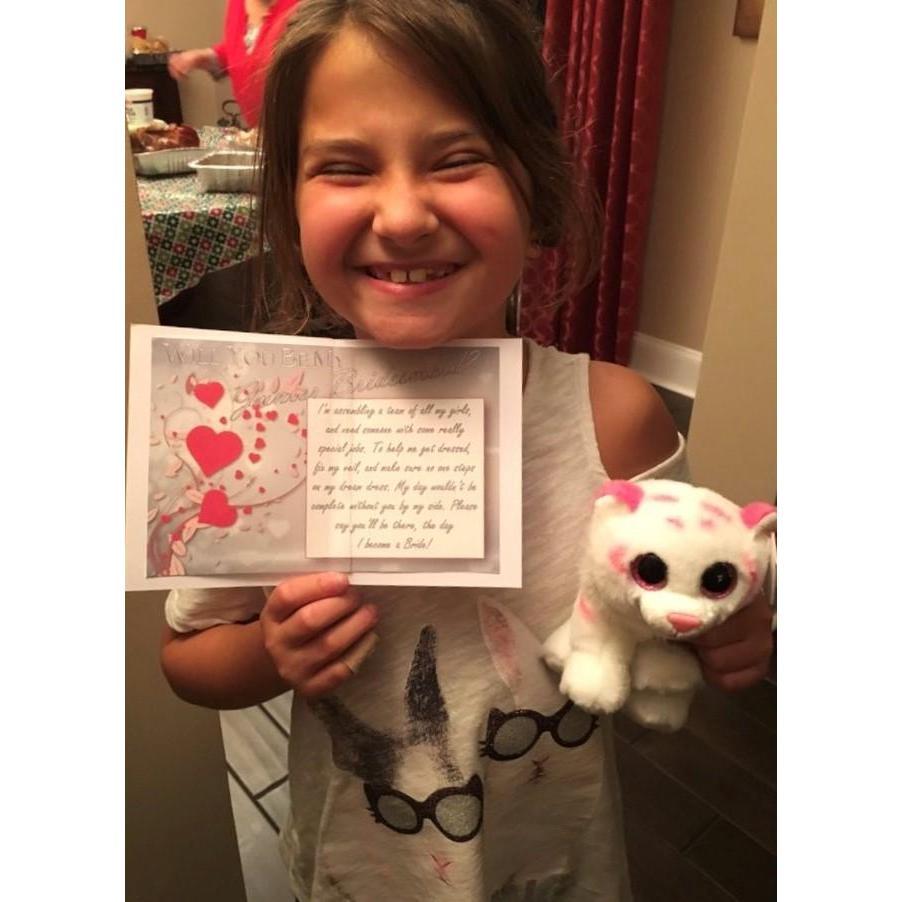 WILL YOU BE MY
Junior Bridesmaid?
I'm assembling a team of all my girls,
and need someone with some really
special jobs. To help me get dressed,
fix my veil, and make sure no one steps
on my dream dress. My day wouldn't be
complete without you by my side. Please
say you'll be there, the day
I become a Bride!